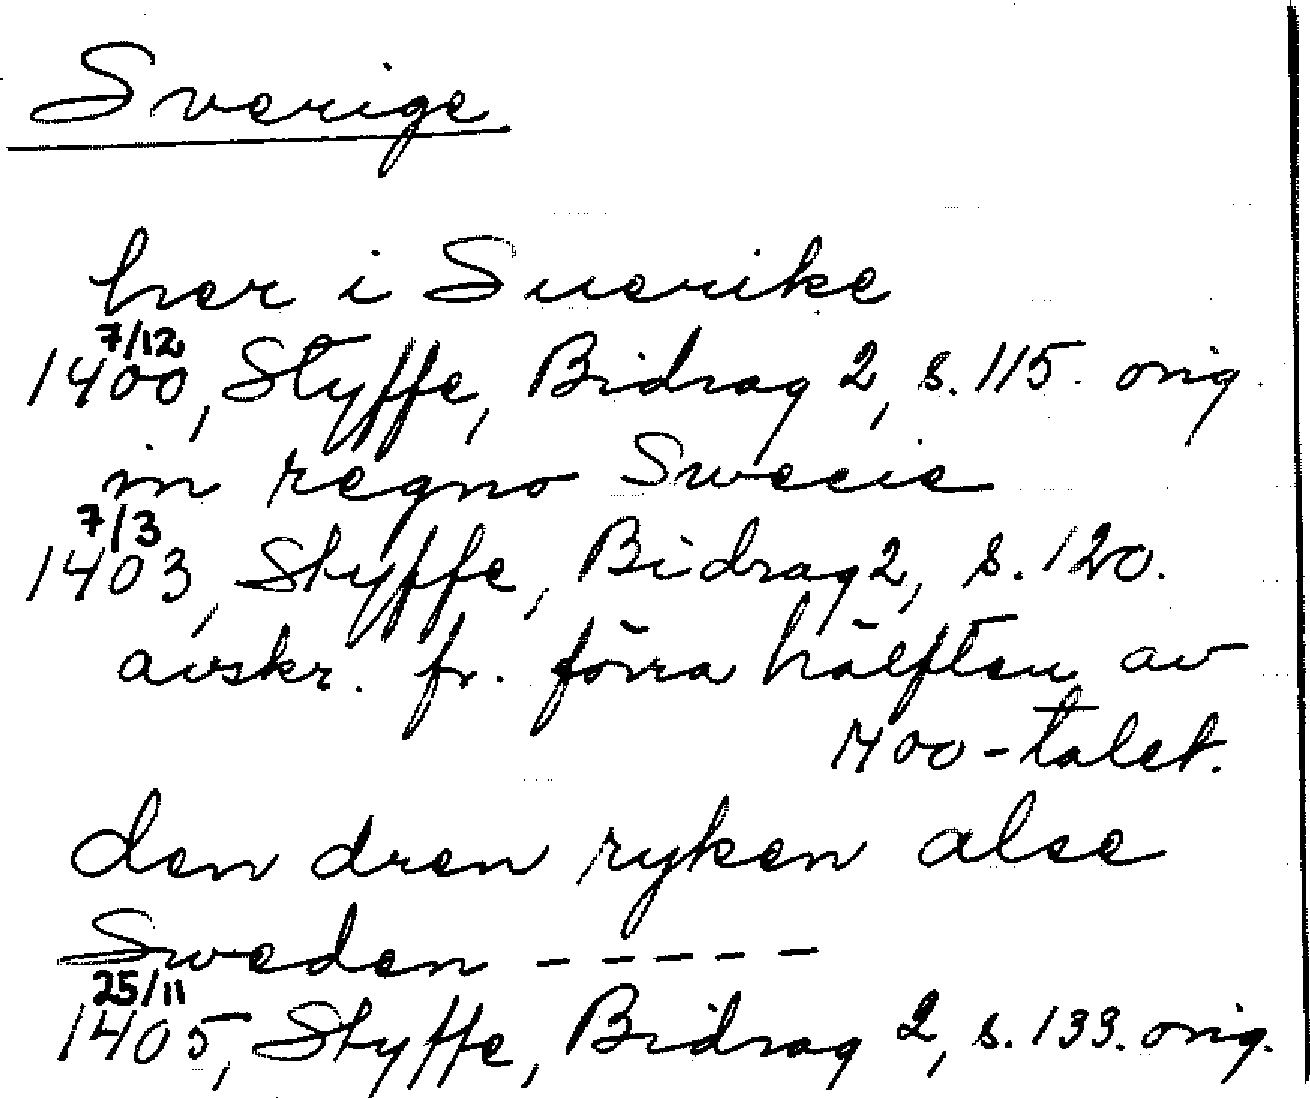 Sverige
her i Suerike
7/12
1400, Styffe, Bidrag 2, s. 115. orig.
in regno Swecie
7/3
1403, Styffe, Bidrag 2, s. 120.
avskr. fr. förra hälften av
1400-talet.
den dren ryken alse
Sweden - - - - -
25/11
1405, Styffe, Bidrag 2, s. 133. orig.